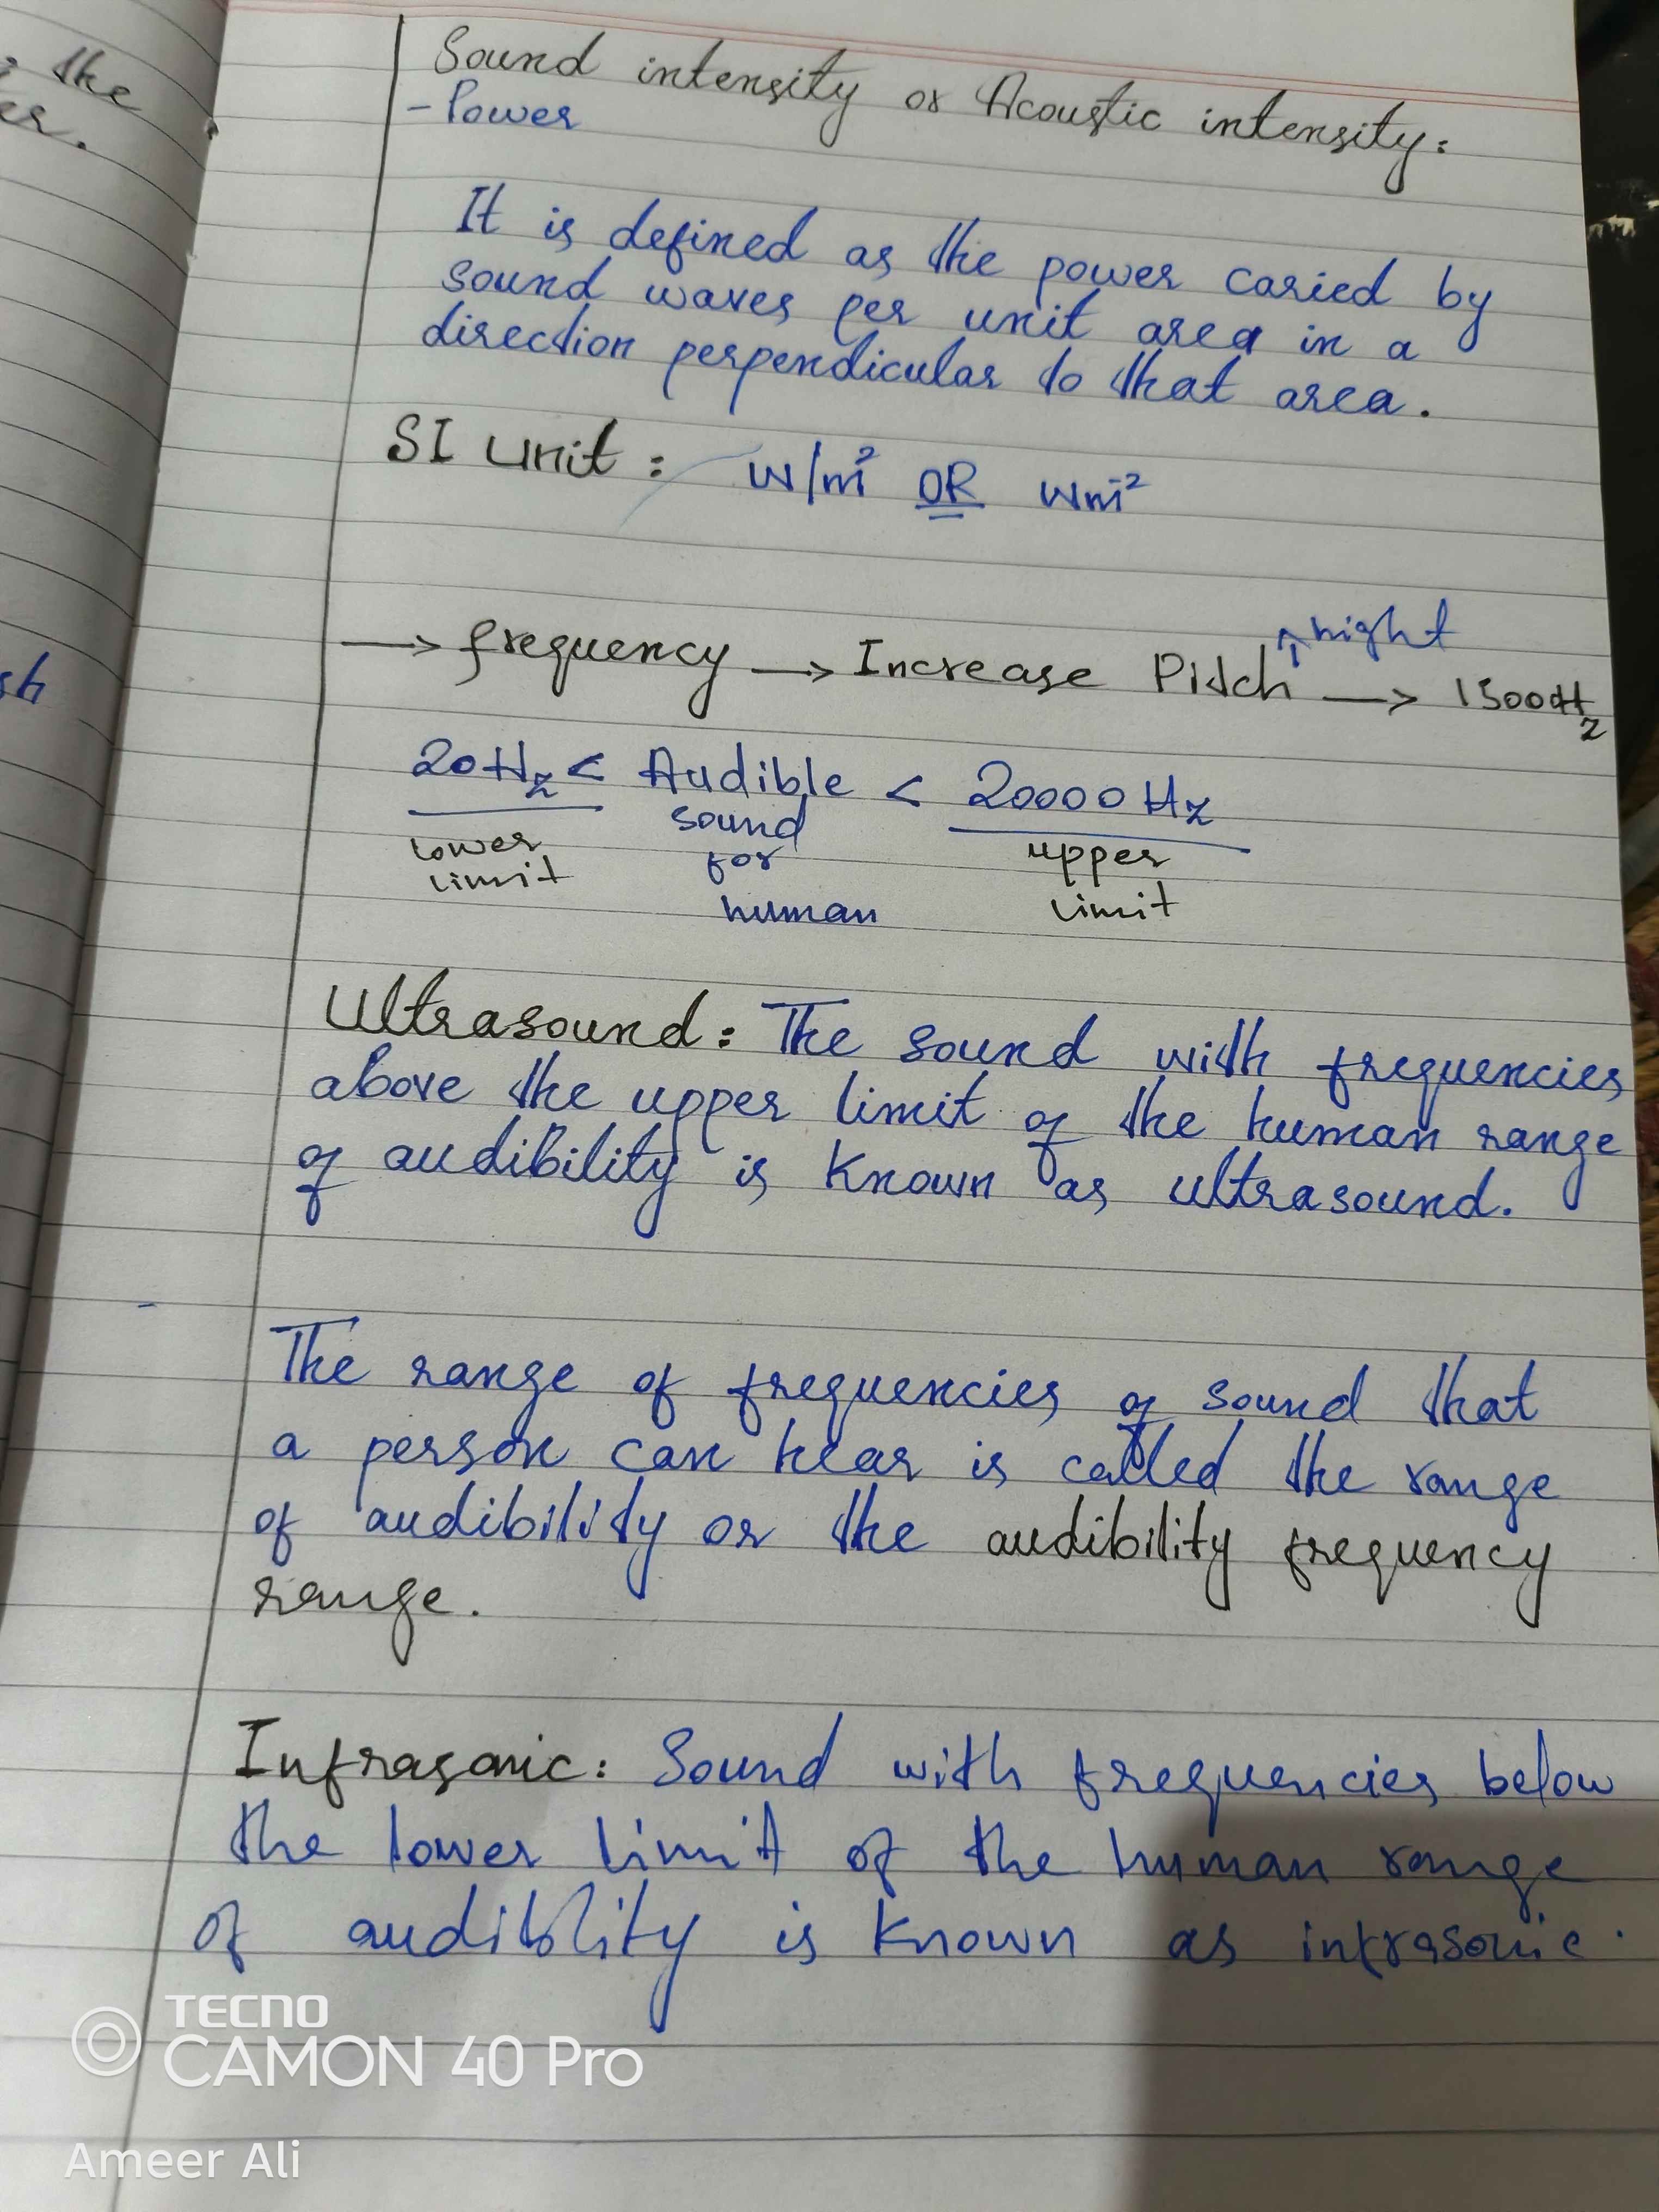 the
er.
sh
Sound intensity or Acoustic intensity:
- Power
It is defined as the power caried by
sound waves per unit area in a
direction perpendicular to that area.
SI Unit : W/m² OR Wm⁻²
→ frequency → Increase Pitch ↑ hight → 1500Hz
20Hz < Audible < 20000Hz
lower sound upper
limit for limit
human
Ultrasound: The sound with frequencies
above the upper limit of the human range
of audibility is known as ultrasound.
The range of frequencies of sound that
a person can hear is called the range
of audibility or the audibility frequency
range.
Infrasonic: Sound with frequencies below
the lower limit of the human range
of audiblity is known as infrasonic.
TECNO
CAMON 40 Pro
Ameer Ali